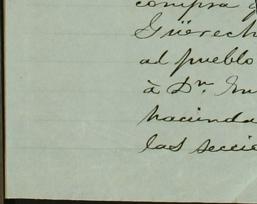 compra
Güerech
al pueblo
à Dn.
hacienda
las seccio